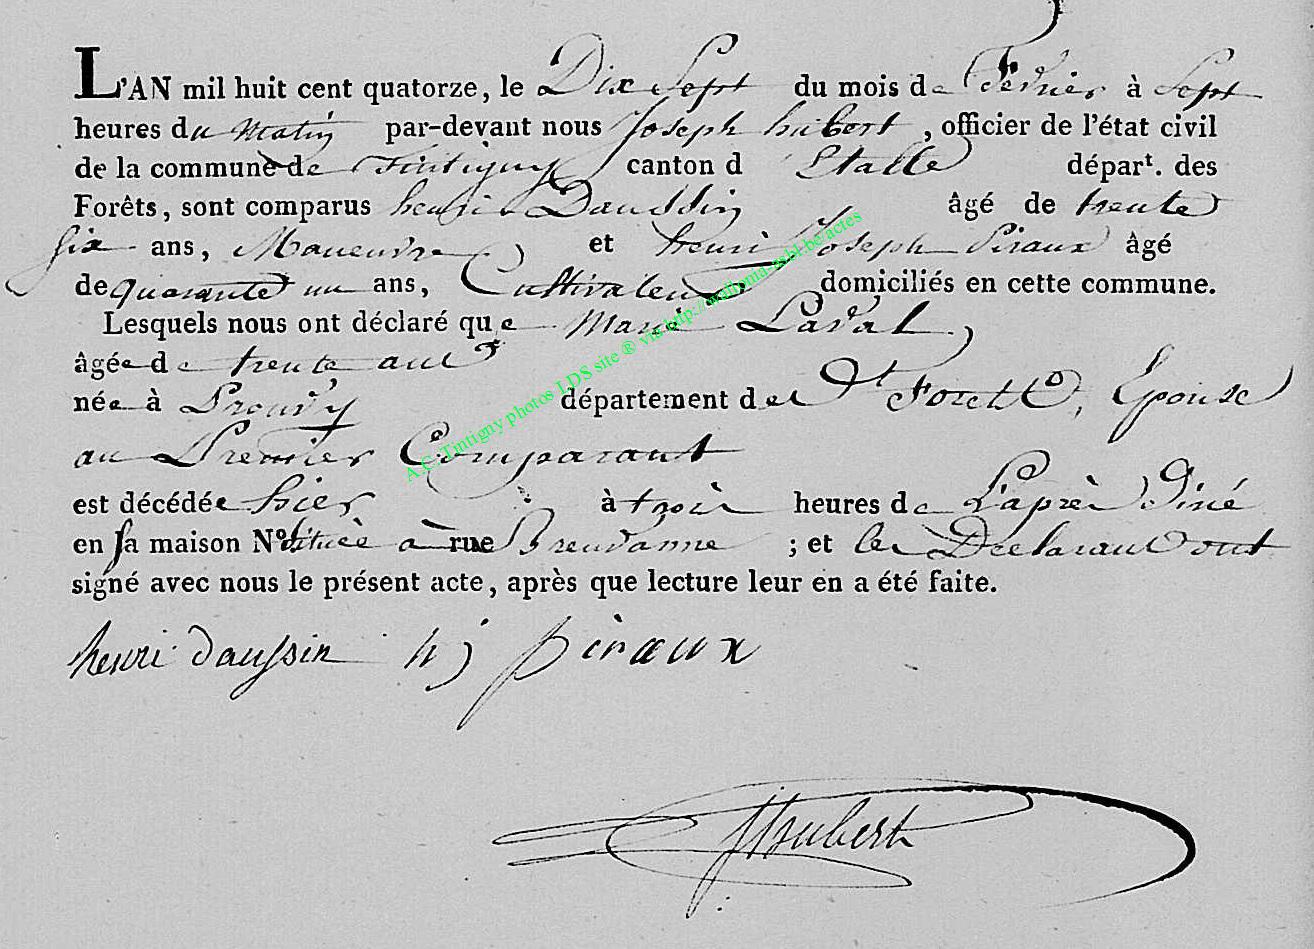 L'AN mil huit cent quatorze, le Dix Sept du mois de Fevrier à Sept
heures du matin par-devant nous Joseph hubert, officier de l'état civil
de la commune de Tintigny canton d Etalle départ. des
Forêts, sont comparus henri Daussin âgé de trente
six ans, Maneuvre et henri Joseph Piraux âgé
de quarante un ans, Cultivateur domiciliés en cette commune.
Lesquels nous ont déclaré que Marie Laval,
âgée de trente ans
née à Prouvy département des Forets, Epouse
au Premier Comparant
est décédée hier à trois heures de L'après Diné
en sa maison N° située à rue Breuvanne ; et les Declarans ont
signé avec nous le présent acte, après que lecture leur en a été faite.
henri daussin h j piraux
JHubert
A.C. Tintigny photos LDS site ® via http://wallonia-asbl.be/actes